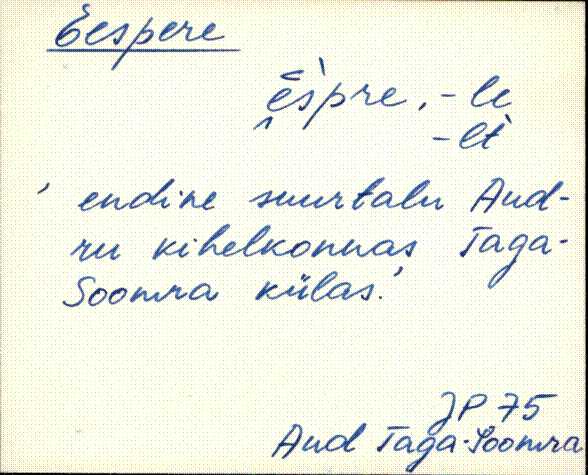 Eespere
ēs̀pre, -le
-lt
' endine suurtalu Aud-
ru kihelkonnas Taga-
Soomra külas.'
JP 75
Aud Taga-Soomra